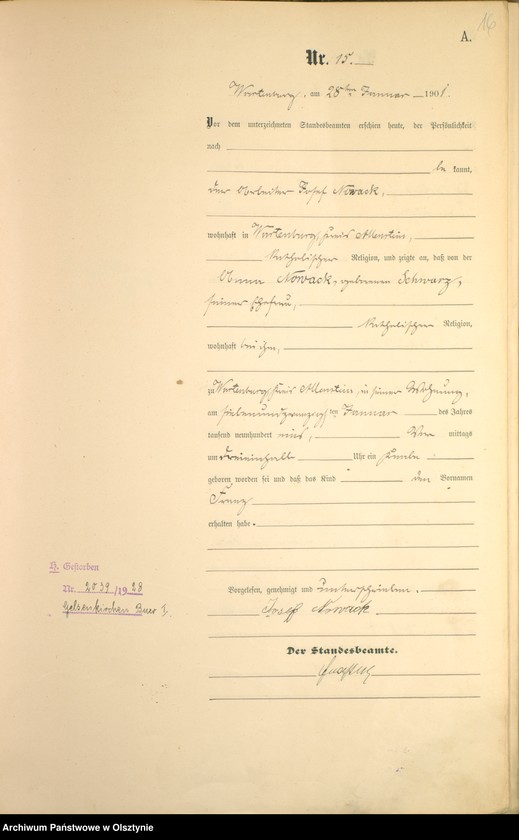 16
A.
Nr. 15.
Wartenburg, am 28ten Januar 1901.
Vor dem unterzeichneten Standesbeamten erschien heute, der Persönlichkeit
nach
be kannt,
der Arbeiter Josef Nowack,
wohnhaft in Wartenburg, Kreis Allenstein,
katholischer Religion, und zeigte an, daß von der
Nowack, geborenen Schwarz,
seiner Ehefrau,
katholischer Religion,
wohnhaft bei ihm,
zu Wartenburg, Kreis Allenstein, in seiner Wohnung,
am siebenundzwanzig ten Januar des Jahres
tausend neunhundert eins, Vor mittags
um dreieinhalb Uhr ein Knabe
geboren worden sei und daß das Kind den Vornamen
Franz
erhalten habe.
Vorgelesen, genehmigt und unterschrieben.
Josef Nowack
Der Standesbeamte.
H. Gestorben
Nr. 2039/1928
Gelsenkirchen Buer 1.
Archiwum Państwowe w Olsztynie